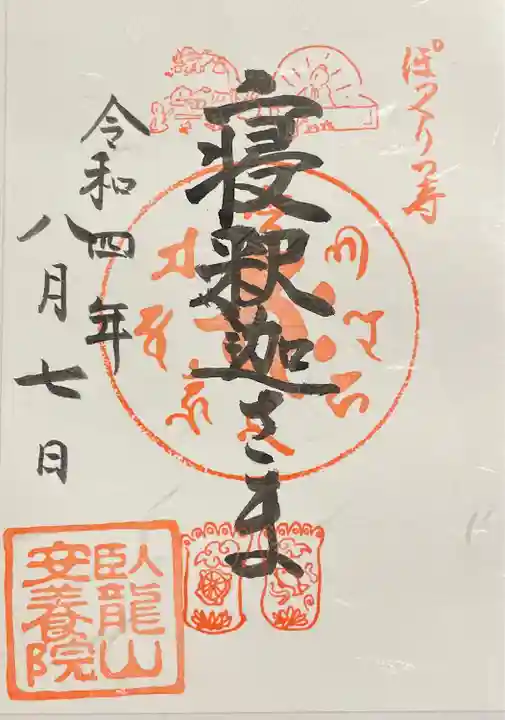 ぽっくり寺
寝釈迦さま
令和四年
八月七日
臥龍山
安養院